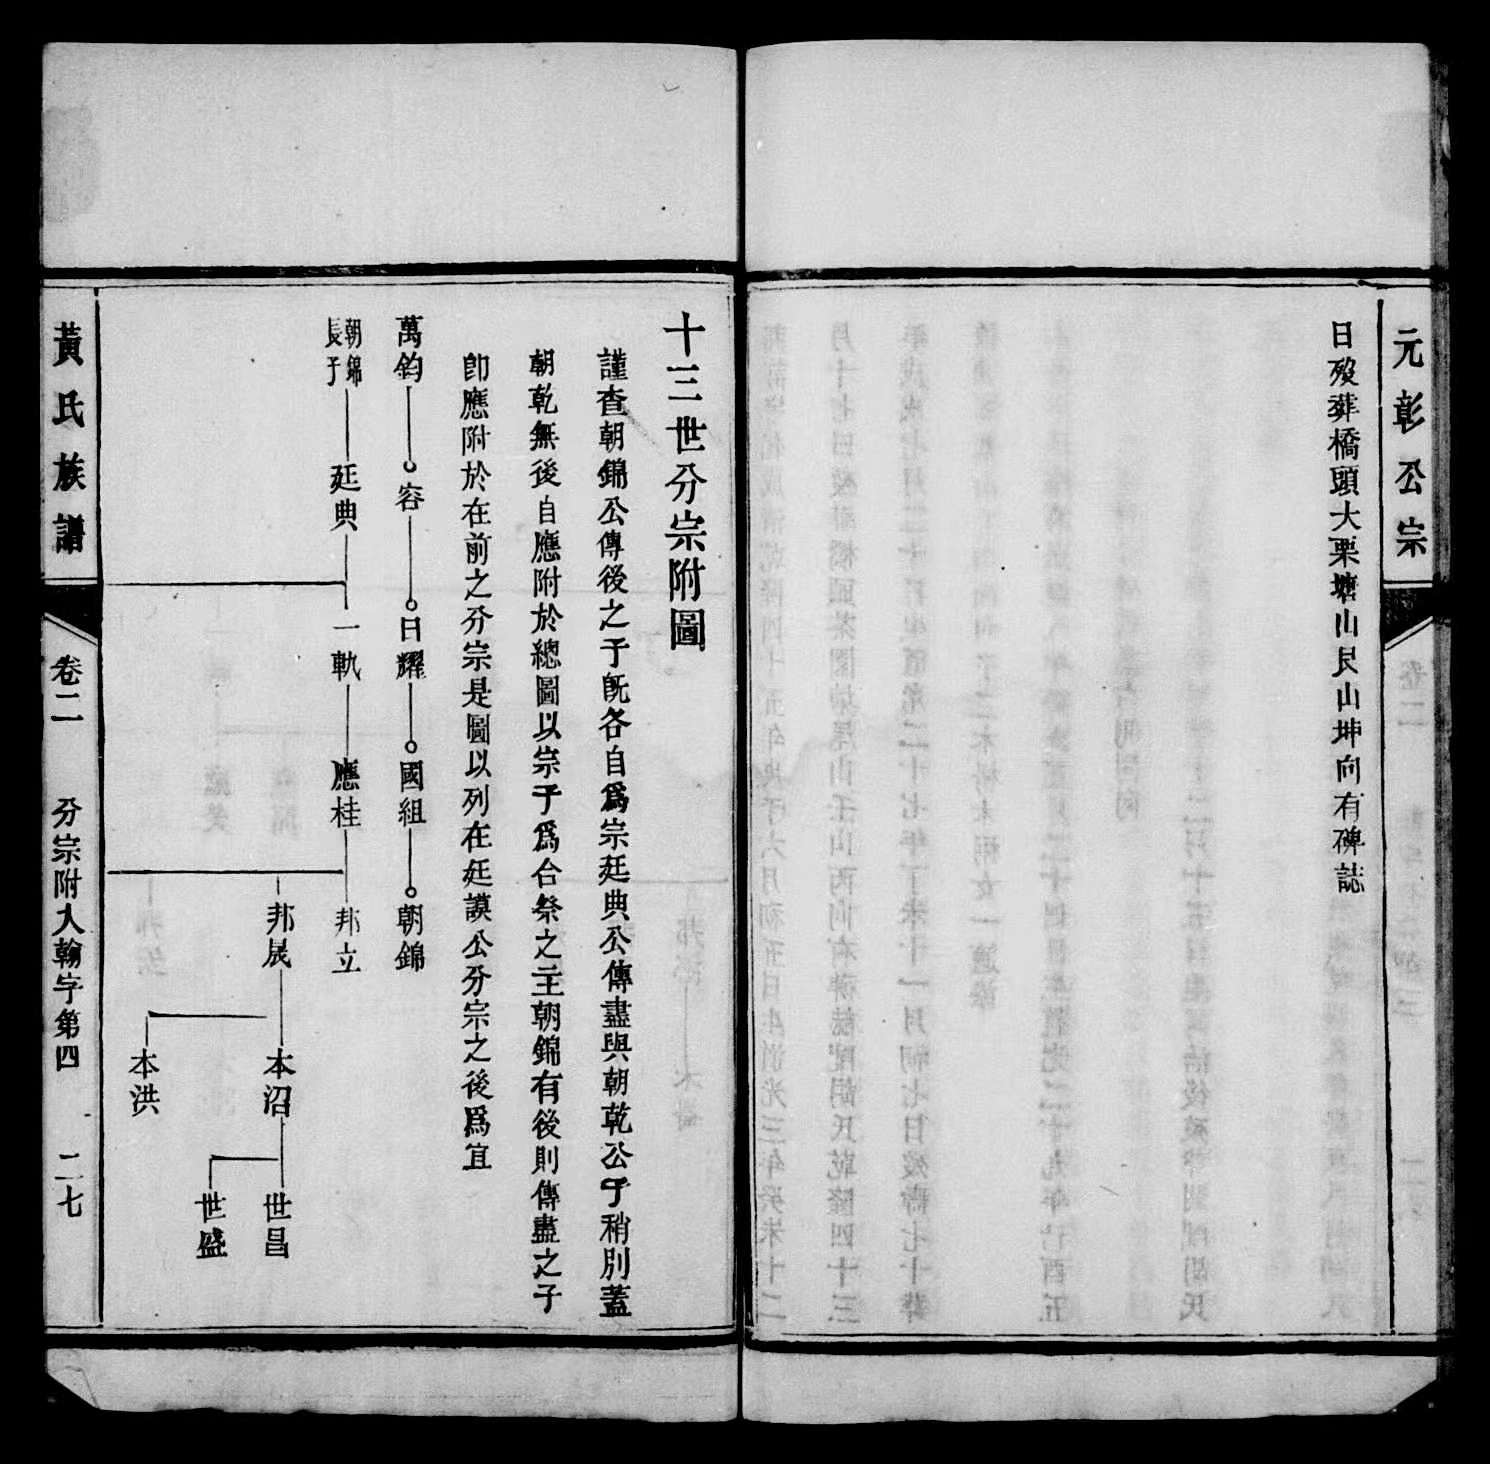 元彰公宗
日歿葬橋頭大栗塘山艮山坤向有碑誌
十三世分宗附圖
謹查朝錦公傳後之子既各自爲宗廷典公傳盡與朝乾公子稍別蓋
朝乾無後自應附於總圖以宗子爲合祭之主朝錦有後則傳盡之子
卽應附於在前之分宗是圖以列在廷謨公分宗之後爲宜
萬鈞 容 日耀 國組 朝錦
朝錦長子 廷典 一軌 應桂 邦立
邦晟 本沼 世昌
世盛
本洪
黃氏族譜 卷二 分宗附人翰字第四 二七